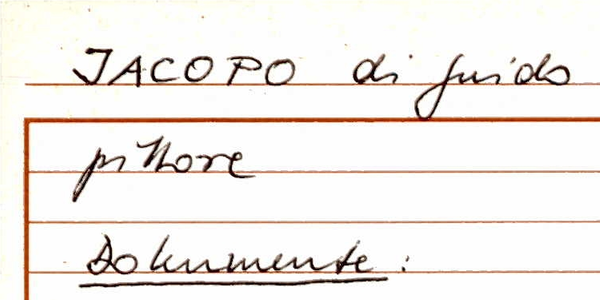 JACOPO di Guido
pittore
Dokumente: